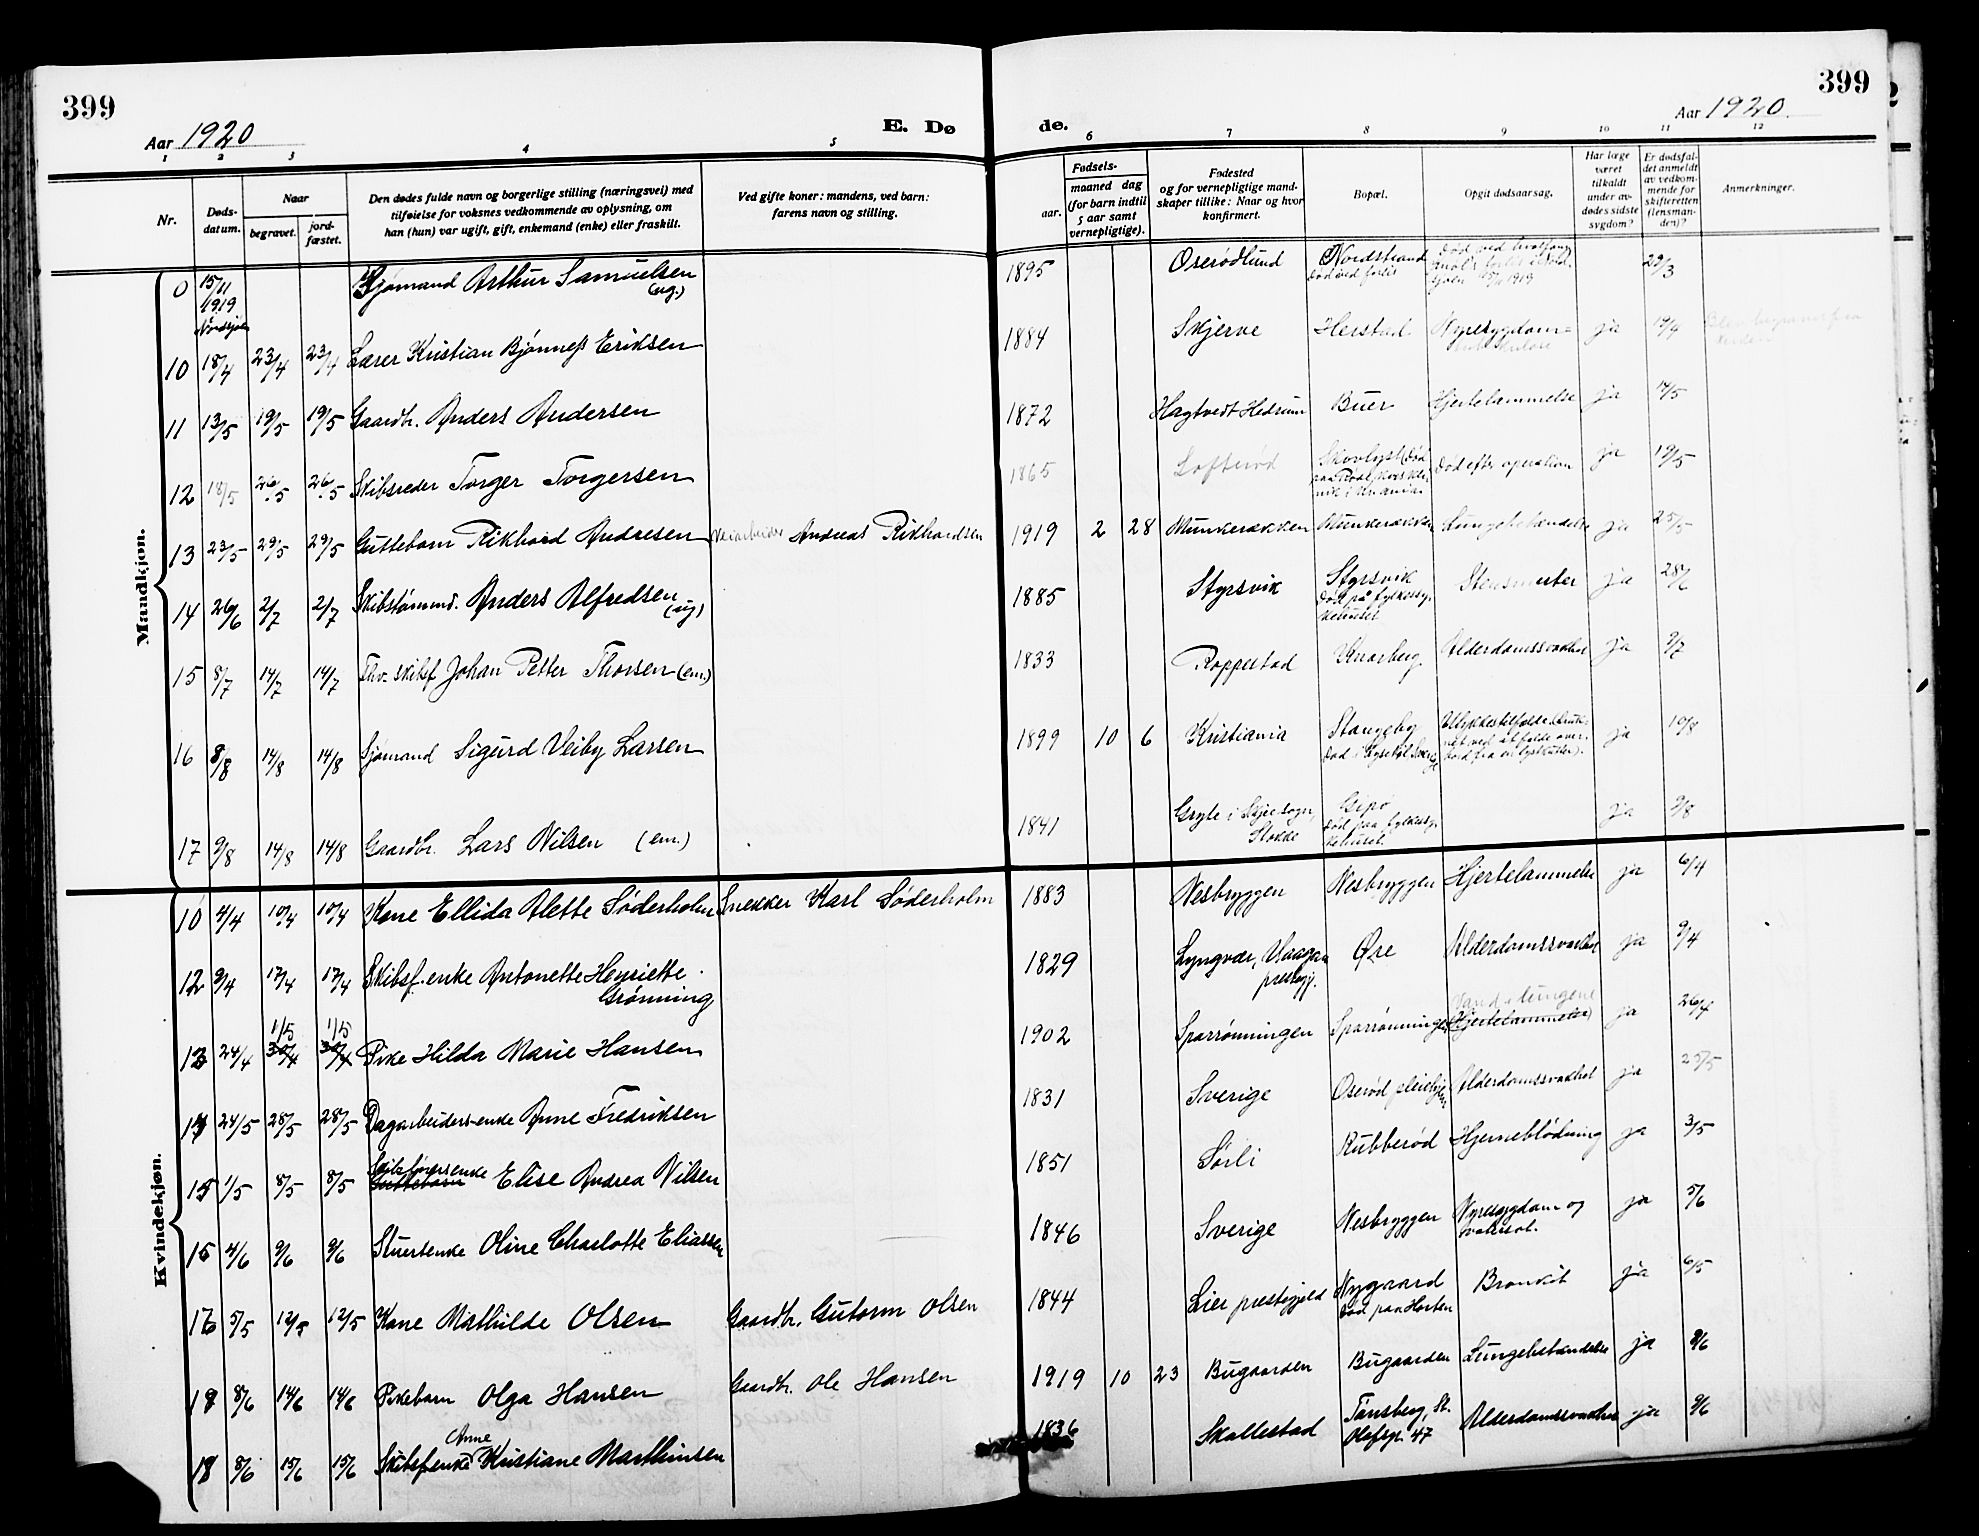 399
399
Aar 1920
E. Dø
de.
Aar 1920.
1 2 3 4 5 6 7 8 9 10 11 12
Nr.
Døds-
datum.
Naar
begravet.
jord-
fæstet.
Den dødes fulde navn og borgerlige stilling (næringsvei) med
tilføielse for voksnes vedkommende av oplysning, om
han (hun) var ugift, gift, enkemand (enke) eller fraskilt.
Ved gifte koner: mandens, ved barn:
farens navn og stilling.
Fødsels-
aar.
maaned dag
(for barn indtil
5 aar samt
vernepligtige).
Fødested
og for vernepligtige mand-
skaper tillike: Naar og hvor
konfirmert.
Bopæl.
Opgit dødsaarsag.
Har læge
været
tilkaldt
under av-
dødes sidste
sygdom?
Er dødsfal-
det anmeldt
av vedkom-
mende for
skifteretten
(lensman-
den)?
Anmerkninger.
Mandkjøn.
0 15/11 1919 Nordsjøen Sjømand Arthur Samuelsen (ug.) 1895 Oserødlund Nordstrand død ved forlis 29/3
10 18/4 23/4 23/4 Lærer Kristian Bjønness Eriksen 1884 Skjerve Herstad Nyresygdom ja 19/4
11 13/5 19/5 19/5 Gaardbr. Anders Andersen 1872 Hagtvedt Hedrum Buer Hjertelammelse ja 14/5
12 18/5 26/5 26/5 Skibsreder Torger Torgersen 1865 Lofterød Skovlyst (død paa Røde Kors Kli-
nik i Kr.ania død efter operation ja 19/5
13 23/5 29/5 29/5 Guttebarn Rikhard Andresen Veiarbeider Andreas Rikhardsen 1919 2 28 Munkerækken Munkerækken Lungebetændelse ja 25/5
14 26/6 2/7 2/7 Skibstømmd. Anders Alfredsen (ug) 1885 Styrsvik Styrsvik død på fylkessy-
kehuset ja 28/6
15 8/7 14/7 14/7 Fhv. skibsf. Johan Petter Thorsen (em.) 1833 Roppestad Knarberg Alderdomssvakhet ja 9/7
16 8/8 14/8 14/8 Sjømand Sigurd Veiby Larsen 1899 10 6 Kristiania Stangeby død i Lysekil, Sverige Ulykkestilfælde (druk-
net ved at falde over-
bord fra en lystkutter). ja 10/8
17 9/8 14/8 14/8 Gaardbr. Lars Nilsen (em.) 1841 Gryte i Skjee sogn, Stokke Gipø død paa fylkessy-
kehuset. ja 9/8
Kvindekjøn.
10 4/4 10/4 10/4 Kone Ellida Alette Søderholm Snekker Karl Søderholm 1883 Nesbryggen Nesbryggen Hjertelammelse ja 6/4
12 9/4 17/4 17/4 Skibsf.enke Antonette Henriette Grønning 1829 Lyngvær, Vaagan prestegj. Øre Alderdomssvakhet ja 9/4
13 24/4 30/4 1/5 30/4 1/5 Pike Hilda Marie Hansen 1902 Sparrønningen Sparrønningen Vand i lungene (Hjertelammelse) ja 26/4
14 24/5 28/5 28/5 Dagarbeiders-enke Anne Fredriksen 1831 Sverige Oserød pleiehjem Alderdomssvakhet ja 25/5
15 1/5 8/5 8/5 Guttebarn Skibsførersenke Elise Andrea Nilsen 1851 Sørli Rubberød Hjerneblødning ja 3/5
15 4/6 9/6 9/6 Stuertenke Oline Charlotte Eliassen 1846 Sverige Nesbryggen Nyresygdom og ja 5/6
16 5/5 12/5 12/5 Kone Mathilde Olsen Gaardbr. Gutorm Olsen 1844 Lier prestegjeld Nygaard død paa Horten Bronkit ja 6/5
17 8/6 14/6 14/6 Pikebarn Olga Hansen Gaardbr. Ole Hansen 1919 10 23 Bugaarden Bugaarden Lungebetændelse ja 9/6
18 8/6 15/6 15/6 Skibsf.enke Anne Kristiane Marthinsen 1836 Skallestad Tønsberg, St. Olafsgt. 47 Alderdomssvakhet ja 9/6